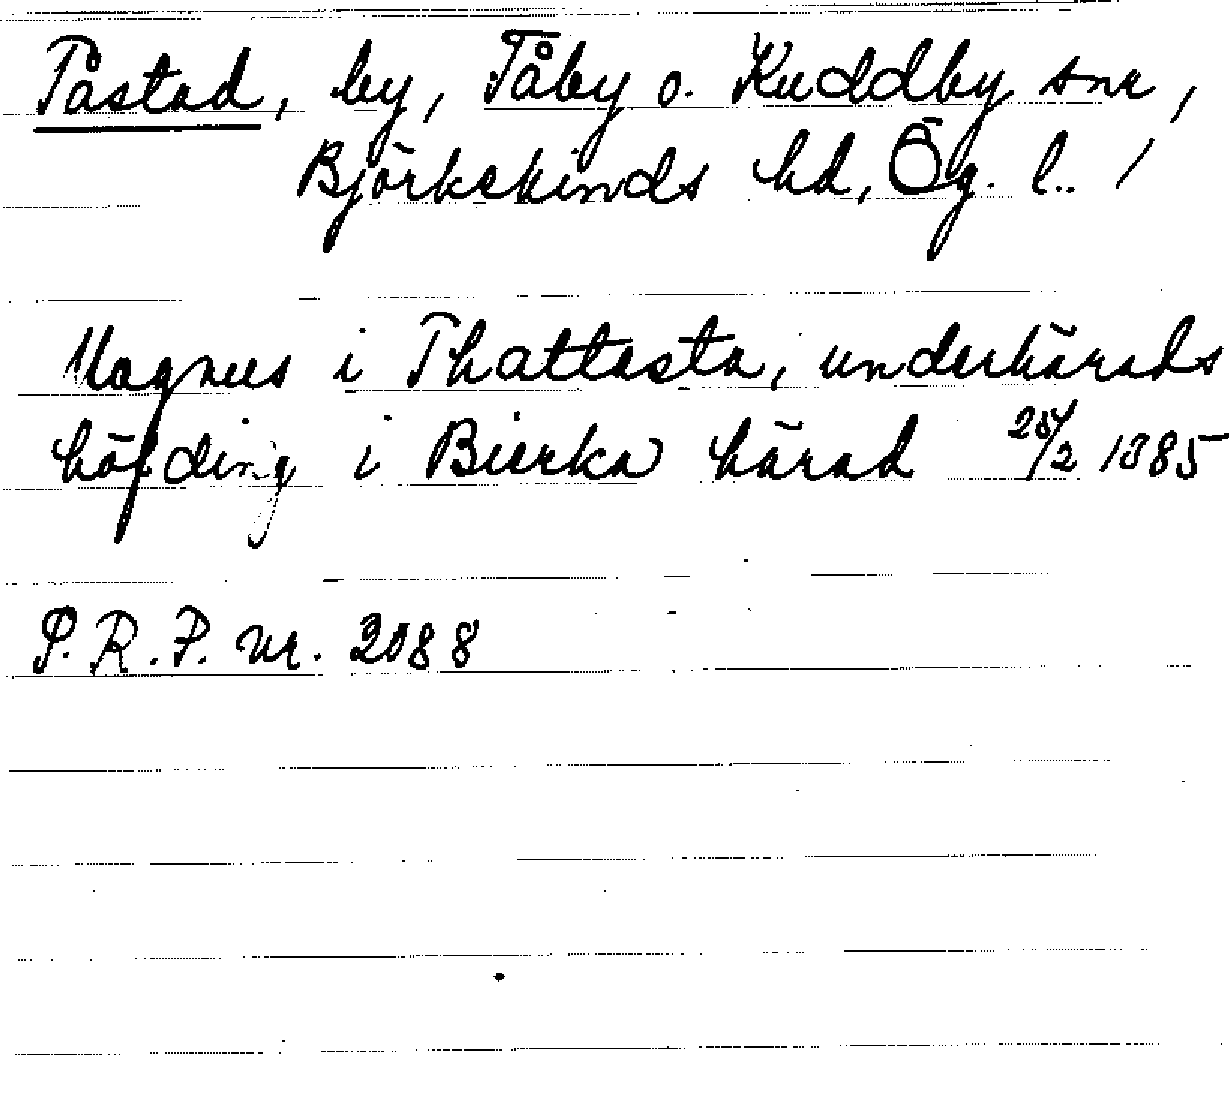 Tåstad, by, Tåby o. Kuddby snr,
Björkekinds hd, Ög. l.. /
Magnus i Thattasta, underhärads
höfding i Bierka härad 25/2 1385
S.R.P. nr. 2088